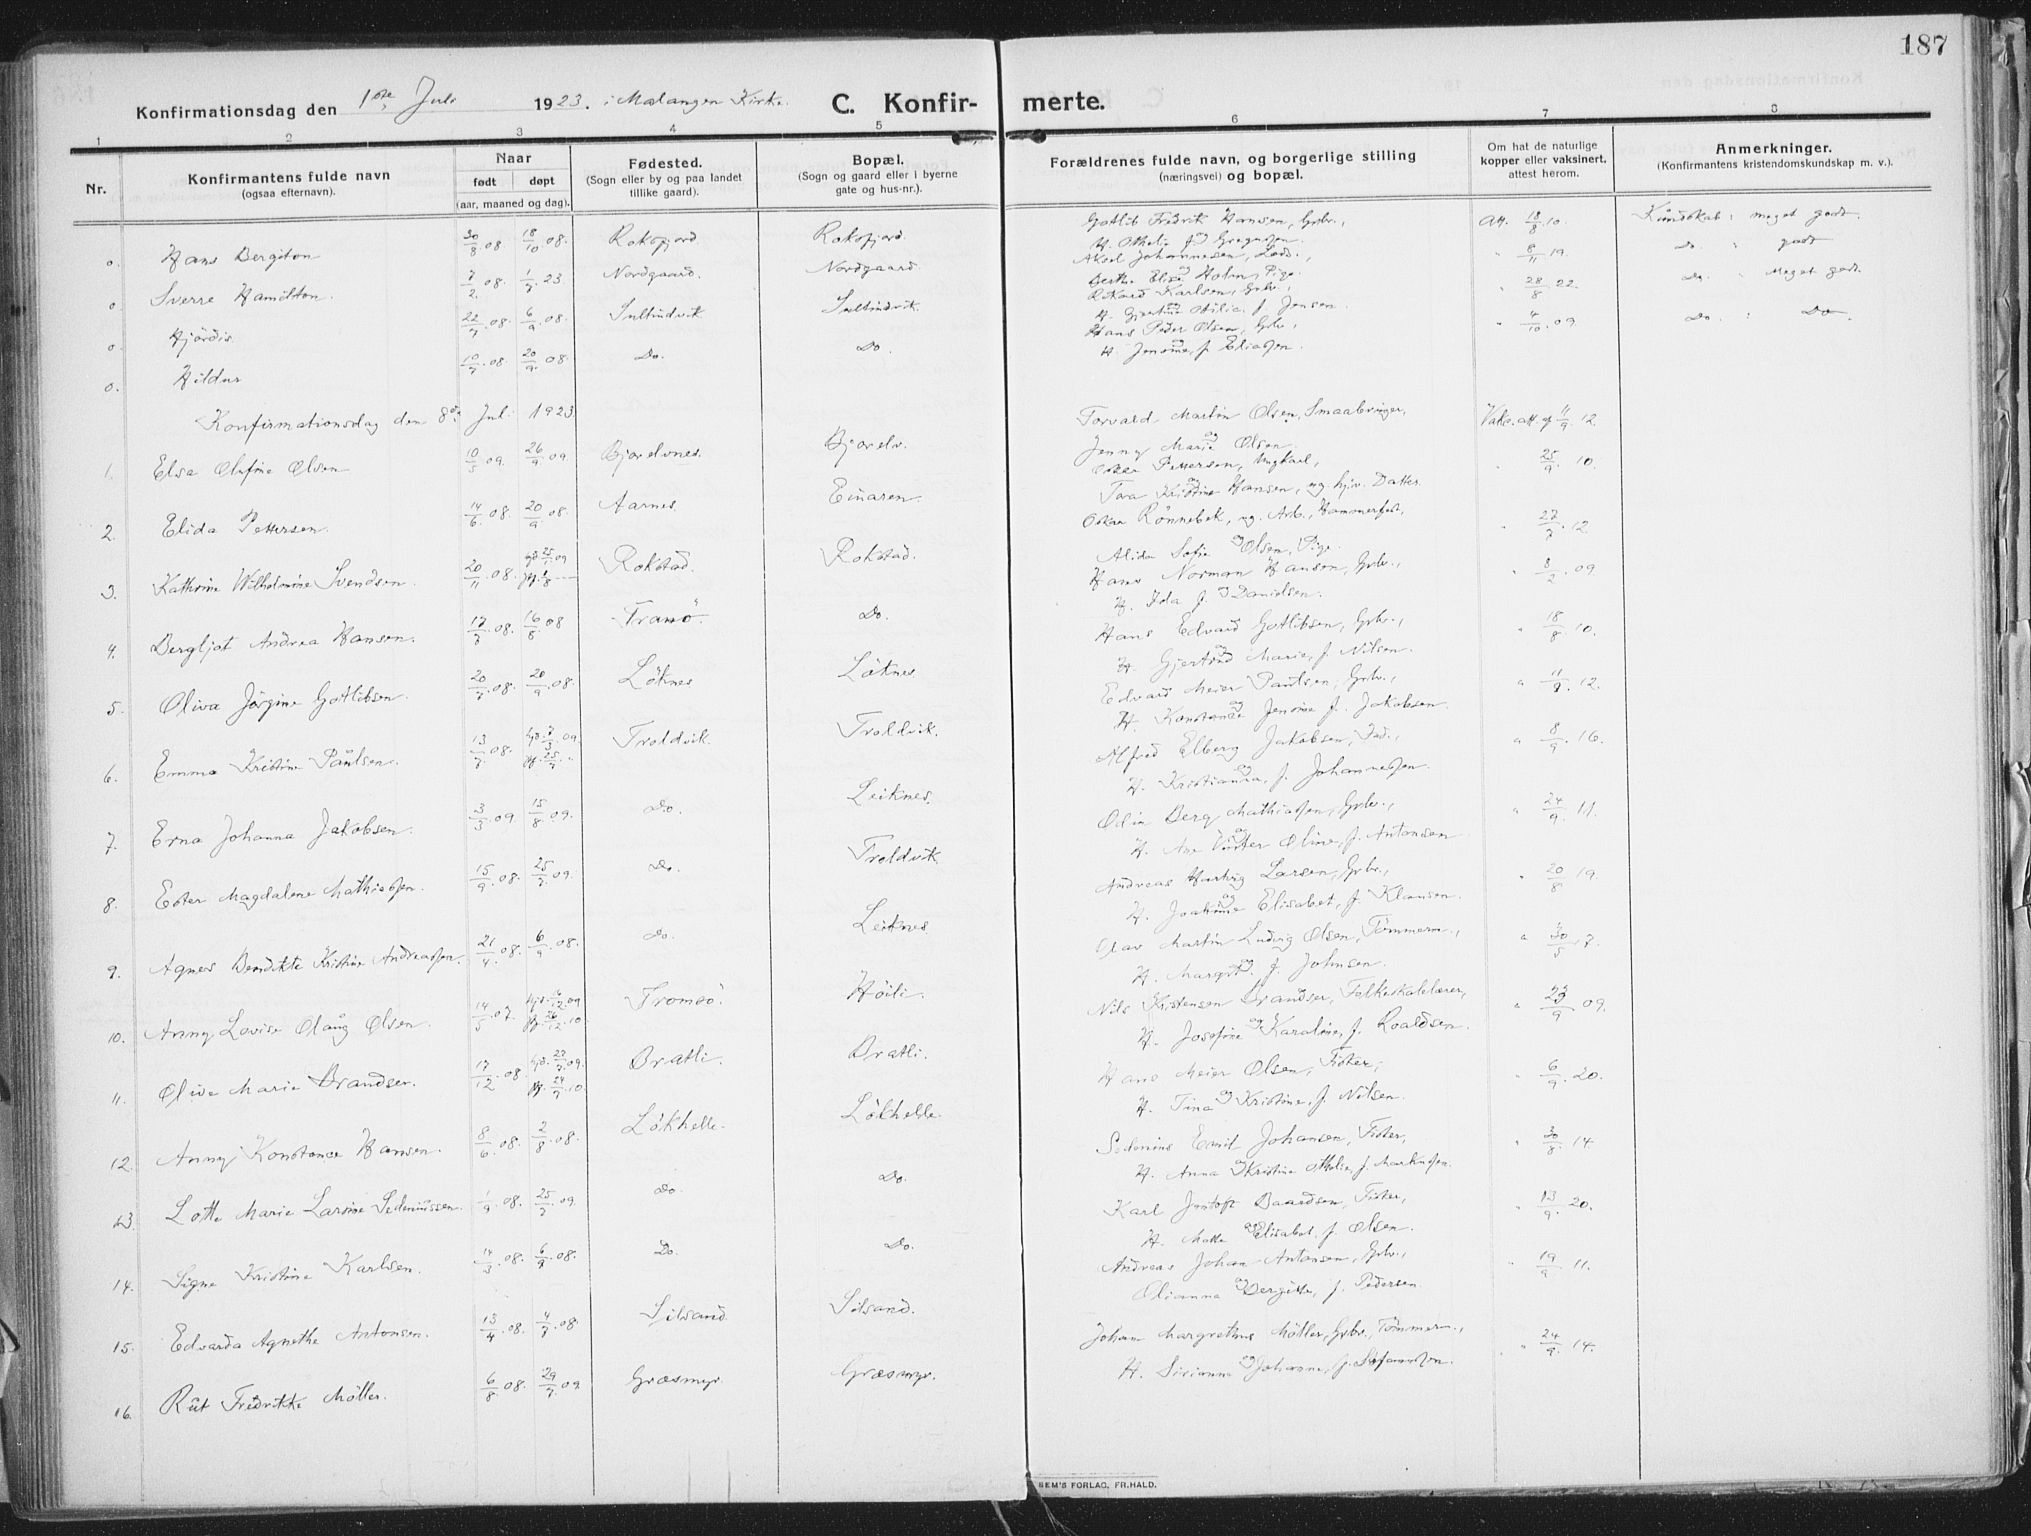 187
Konfirmationsdag den 1ste Juli 1923. i Malangen Kirke. C. Konfirmerte.
1 2 3 4 5 6 7 8
Nr.
Konfirmantens fulde navn
(ogsaa efternavn).
Naar
født døpt
(aar, maaned og dag).
Fødested.
(Sogn eller by og paa landet
tillike gaard).
Bopæl.
(Sogn og gaard eller i byerne
gate og hus-nr.).
Forældrenes fulde navn, og borgerlige stilling
(næringsvei) og bopæl.
Om hat de naturlige
kopper eller vaksinert,
attest herom.
Anmerkninger.
(Konfirmantens kristendomskundskap m. v.).
o. Hans Bergiton 30/8 08. 18/10 08. Roksfjord. Roksfjord. Gotlib Fredrik Hansen, Grbr., Att. 18/8 10. Kundskab: meget godt.
og
H. Othelie f.
o Sverre Hamilton. 7/2 08. 1/7 23. Nordgaard. Nordgaard. Aksel Johannesen, " 8/11 19. Do. : godt
og
Berthe Elise Holm, Pige.
o. Hjördis 22/7 08. 6/9 08. Sultindvik Sultindvik Rikard Karlsen, Grbr., " 28/8 22. Do. : Meget godt.
H. Gjertine Otilie f. Jensen.
o. Hildur 10/7 08. 20/9 08. Do. Do. Hans Peder Olsen, Grbr., " 4/10 09. Do. : Do
og
H. Jensine, f. Eliassen.
Konfirmationsdag den 8de Juli 1923
1. Elsa Olufine Olsen 10/5 09. 26/9 09. Bjorelvnes. Bjorelv. Torvald Martin Olsen, Smaabruger, Vaks. att. af 11/9 12.
og
Jenny Marie Olsen.
2. Elida Pettersen. 14/6 08. 20/9 08. Aarnes. Einaren. Oskar Pettersen, Ungkarl, " 25/9 10.
og
Tora Kristine Hansen, ug. hjv. Datter.
3. Kathrine Wilhelmine Svendsen. 20/11 08. Rokstad. Rokstad. Oskar Rønnebek, ug. Arb., Hammerfest, " 27/7 12
og
Alida Sofie Olsen, Pige.
4. Bergljot Andrea Hansen. 17/7 08. 16/8 08 Tranö. Do. Hans Norman Hanson, Grbr., " 8/2 09
og
H. Ida f. Danielsen.
5. Oliva Jörgine Gotlibsen. 20/7 08. 20/9 08. Löknes Löknes Hans Edvard Gotlibsen, Grbr., " 18/8 10.
og
H. Gjertrud Marie, f. Nilsen.
6. Emma Kristine Paulsen. 13/7 08. Troldvik. Troldvik. Edvard Meier Paulsen, Grbr., " 11/9 12.
og
H. Konstance Jensine f. Jakobsen.
7. Erna Johanna Jakobsen. 3/3 09. 15/8 09. Do. Leiknes. Alfred Elberg Jakobsen, " 8/9 16.
og
H. Kristianna, f. Johannessen.
8. Ester Magdalene Mathiassen. 15/9 08. 25/7 09. Do. Troldvik Odin Berg Mathiassen, Grbr., " 24/9 11.
og
H. Oline, f. Antonsen
9. Agnes Bendikte Kristine Andreassen. 21/4 08. 6/9 08. Do. Leiknes Andreas Hartvig Larsen, Grbr., " 20/8 19.
og
H. Joakime Elisabet, f. Klausen.
10. Anny Lovise Olaug Olsen. 14/5 07. Tromsö. Höili. Olav Martin Ludvig Olsen, Tömmerm., " 30/5
og
H. Margit f. Johnsen.
11. Olive Marie Brandser. 17/12 08. Bratli. Bratli. Nils Kristensen Brandser, Folkeskolelærer, " 23/9 09.
og
H. Josefine Karoline, f. Roaldsen.
12. Anny Konstance Hansen. 8/6 08. 2/8 08. Lökhelle. Lökhelle. Hans Meier Olsen, Fisker, " 6/9 20.
og
H. Tina Kristine, f. Nilsen.
13. Lotte Marie Larsine Sedeniussen. 1/9 08. 25/7 09. Do. Do. Sedenius Emil Johansen, Fisker, " 30/8 14.
og
H. Anna Kristine Othelie, f. Markussen.
14. Signe Kristine Karlsen. 14/3 08. 6/9 08. Do. Do. Karl Jentoft Baardsen, Fisker, " 13/9 20.
og
H. Mette Elisabet, f. Olsen.
15. Edvarda Agnethe Antonsen. 13/4 08. 4/7 08. Silsand. Silsand. Andreas Johan Antonsen, Grbr., " 19/9 11.
og
Olianna Bergitte, f. Pedersen.
16. Rut Fredrikke Möller. 6/8 08. 29/7 09. Græsmyr. Græsmyr. Johan Margrethus Möller, Grbr., Tömmerm., " 24/9 14.
og
H. Sirianna Johanne, f. Stefanussen.
SEM'S FORLAG, FR.HALD.